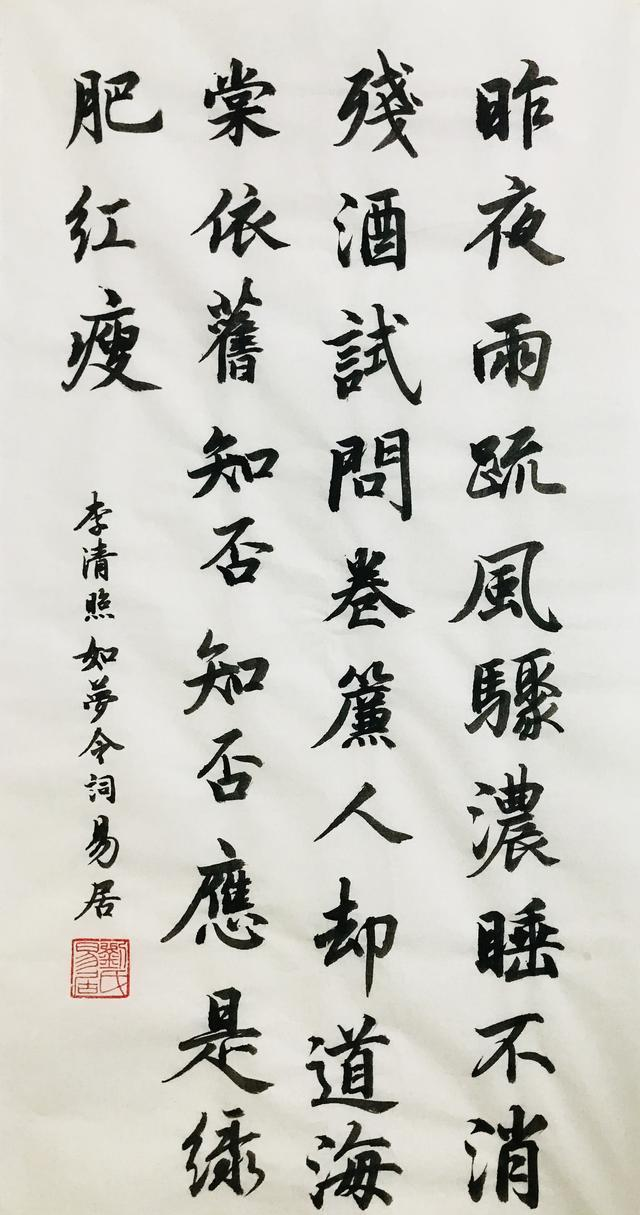 昨夜雨疏風驟濃睡不消
殘酒試問卷簾人却道海
棠依舊知否知否應是綠
肥紅瘦
李清照如夢令詞易居
劉氏易居